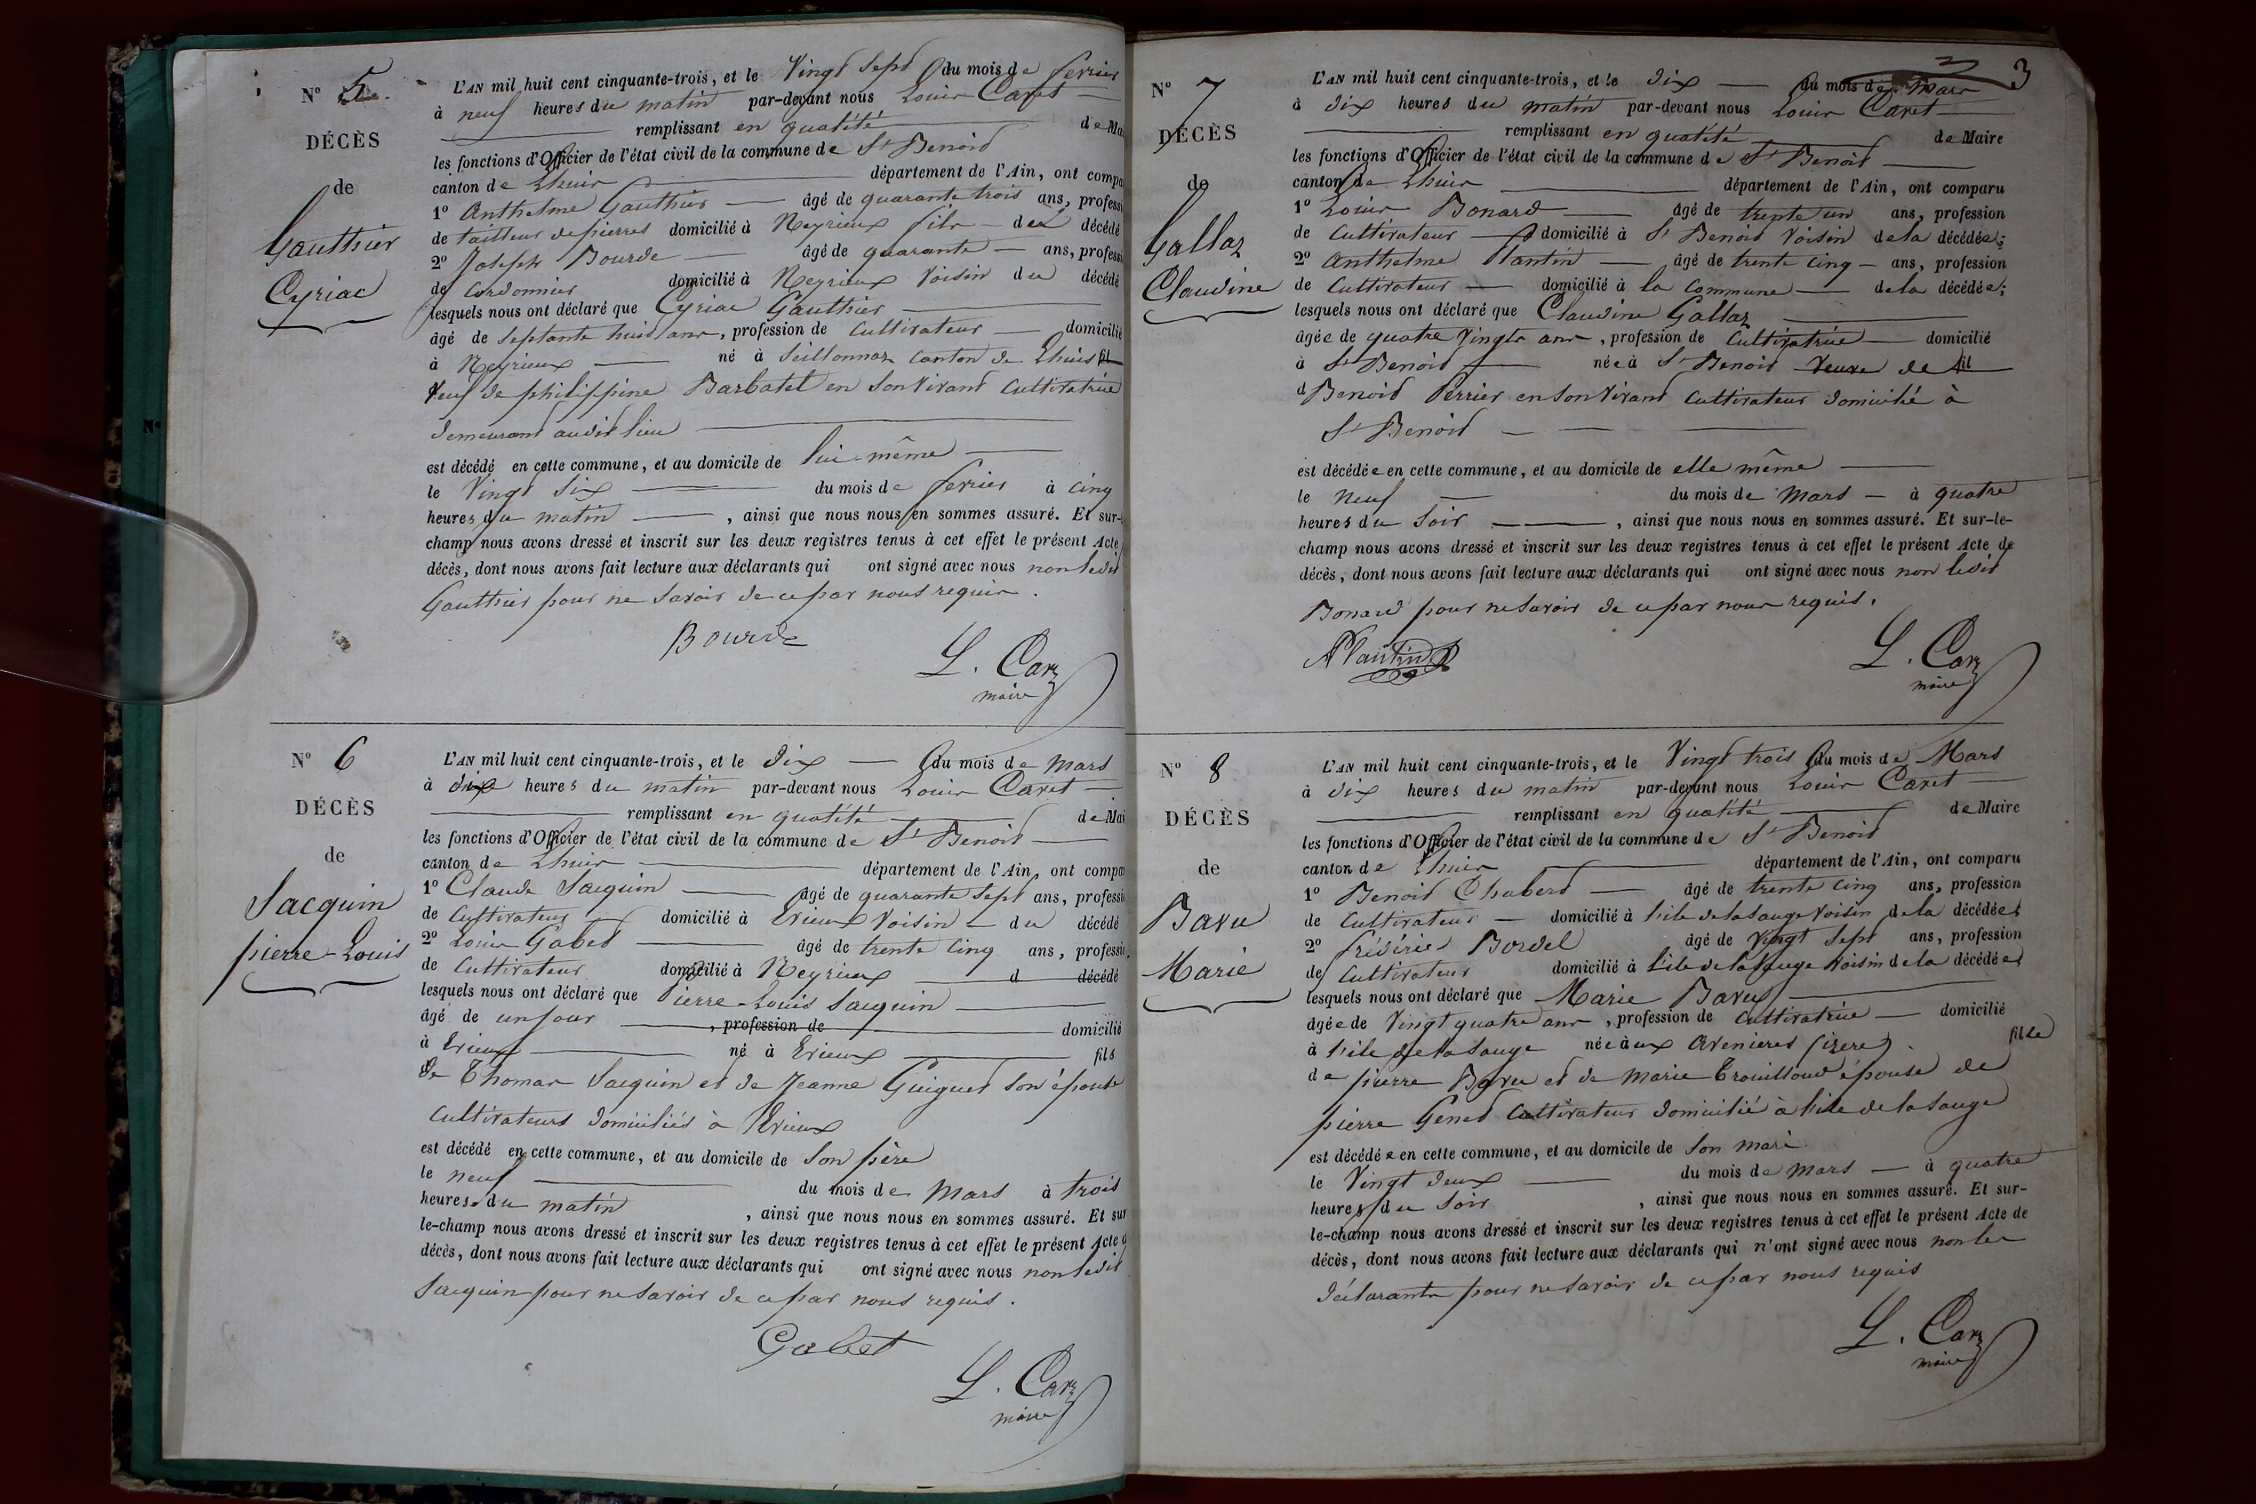 N° 5
DÉCÈS
de
Gauthier
Cyriac
L'AN mil huit cent cinquante-trois, et le Vingt Sept du mois de fevrier
à neuf heures du matin par-devant nous Louis Caret
remplissant en qualité de Mai
les fonctions d'Officier de l'état civil de la commune de St Benoit
canton de Lhuis département de l'Ain, ont compa
1° Anthelme Gauthier âgé de quarante trois ans, professi
de tailleur de pierres domicilié à Neyrieux fils du décédé
2° Joseph Bourde âgé de quarante ans, professi
de Cordonnier domicilié à Neyrieux Voisin du décédé
lesquels nous ont déclaré que Cyriac Gauthier
âgé de Septante huit ans, profession de Cultivateur domicilié
à Neyrieux né à Seillonnaz Canton de Lhuis fil
Veuf de philippine Barbatel en Son Vivant Cultivatrice
demeurant audit lieu
est décédé en cette commune, et au domicile de lui même
le Vingt Six du mois de fevrier à cinq
heures du matin, ainsi que nous nous en sommes assuré. Et sur-
champ nous avons dressé et inscrit sur les deux registres tenus à cet effet le présent Acte
décès, dont nous avons fait lecture aux déclarants qui ont signé avec nous non ledit
Gauthier pour ne Savoir de ce par nous requis.
Bourde
L. Caret
maire
N° 6
DÉCÈS
de
Sacquin
pierre-Louis
L'AN mil huit cent cinquante-trois, et le dix du mois de Mars
à dix heures du matin par-devant nous Louis Caret
remplissant en qualité de Mai
les fonctions d'Officier de l'état civil de la commune de St Benoit
canton de Lhuis département de l'Ain, ont compa
1° Claude Sacquin âgé de quarante Sept ans, professi
de Cultivateur domicilié à Evieux Voisin du décédé
2° Louis Gabet âgé de trente Cinq ans, professi
de Cultivateur domicilié à Neyrieux d décédé
lesquels nous ont déclaré que Pierre-Louis Sacquin
âgé de un jour, profession de domicilié
à Evieux né à Evieux fils
de Thomas Sacquin et de Jeanne Guigues Son épouse
Cultivateurs domiciliés à Evieux
est décédé en cette commune, et au domicile de Son père
le neuf du mois de Mars à trois
heures du matin, ainsi que nous nous en sommes assuré. Et sur
le-champ nous avons dressé et inscrit sur les deux registres tenus à cet effet le présent Acte d
décès, dont nous avons fait lecture aux déclarants qui ont signé avec nous non ledit
Sacquin pour ne Savoir de ce par nous requis.
Gabet
L. Caret
maire
3
N° 7
DÉCÈS
de
Gallaz
Claudine
L'AN mil huit cent cinquante-trois, et le dix du mois de Mars
à dix heures du matin par-devant nous Louis Caret
remplissant en qualité de Maire
les fonctions d'Officier de l'état civil de la commune de St Benoit
canton de Lhuis département de l'Ain, ont comparu
1° Louis Bonard âgé de trente un ans, profession
de Cultivateur domicilié à St Benoit Voisin de la décédée;
2° Anthelme Plantin âgé de trente cinq ans, profession
de Cultivateur domicilié à la Commune de la décédée;
lesquels nous ont déclaré que Claudine Gallaz
âgée de quatre Vingts ans, profession de Cultivatrice domicilié
à St Benoit née à St Benoit Veuve de fil
d Benoit Perrier en Son Vivant Cultivateur domicilié à
St Benoit
est décédée en cette commune, et au domicile de elle même
le neuf du mois de Mars à quatre
heures du Soir, ainsi que nous nous en sommes assuré. Et sur-le-
champ nous avons dressé et inscrit sur les deux registres tenus à cet effet le présent Acte de
décès, dont nous avons fait lecture aux déclarants qui ont signé avec nous non ledit
Bonard pour ne Savoir de ce par nous requis.
APlantin
L. Caret
maire
N° 8
DÉCÈS
de
Bavu
Marie
L'AN mil huit cent cinquante-trois, et le Vingt trois du mois de Mars
à dix heures du matin par-devant nous Louis Caret
remplissant en qualité de Maire
les fonctions d'Officier de l'état civil de la commune de St Benoit
canton de Lhuis département de l'Ain, ont comparu
1° Benoit Chabert âgé de trente cinq ans, profession
de Cultivateur domicilié à l'ile de la Sauge Voisin de la décédée;
2° frédéric Bordel âgé de Vingt Sept ans, profession
de Cultivateur domicilié à l'ile de la Sauge Voisin de la décédée;
lesquels nous ont déclaré que Marie Bavu
âgée de Vingt quatre ans, profession de Cultivatrice domicilié
à l'ile de la Sauge née à aux Avenieres (izere). fille
de pierre Bavu et de Marie Trouilloud épouse de
pierre Genet Cultivateur domicilié à l'ile de la Sauge
est décédée en cette commune, et au domicile de Son mari
le Vingt deux du mois de Mars à quatre
heures du Soir, ainsi que nous nous en sommes assuré. Et sur-
le-champ nous avons dressé et inscrit sur les deux registres tenus à cet effet le présent Acte de
décès, dont nous avons fait lecture aux déclarants qui n'ont signé avec nous non les
déclarants pour ne Savoir de ce par nous requis
L. Caret
maire